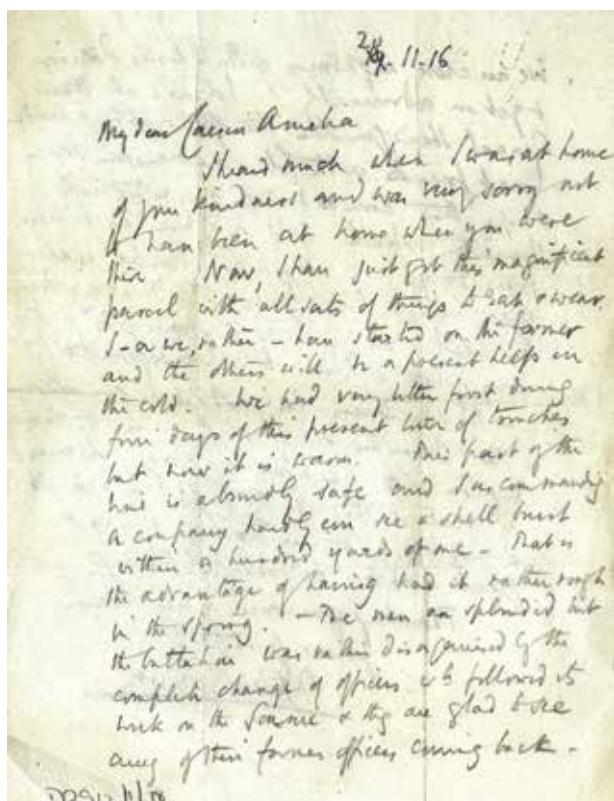 11-16
My dear Cousin Amelia
I heard much when I was at home
of your kindness and was very sorry not
to have been at home when you were
there Now, I have just got this magnificent
parcel with all sorts of things to eat & wear.
I - or we, rather - have started on the former
and the others will be a present help in
the cold. We had very bitter frost during
five days of this present tour of trenches
but now it is warm. This part of the
line is absurdly safe and I as commanding
a company hardly ever see a shell burst
within a hundred yards of me - That is
the advantage of having had it rather rough
in the spring. - The men are splendid but
the battalion was rather disorganised by the
complete change of officers wh followed its
work on the Somme & they are glad to see
any of their former officers coming back -